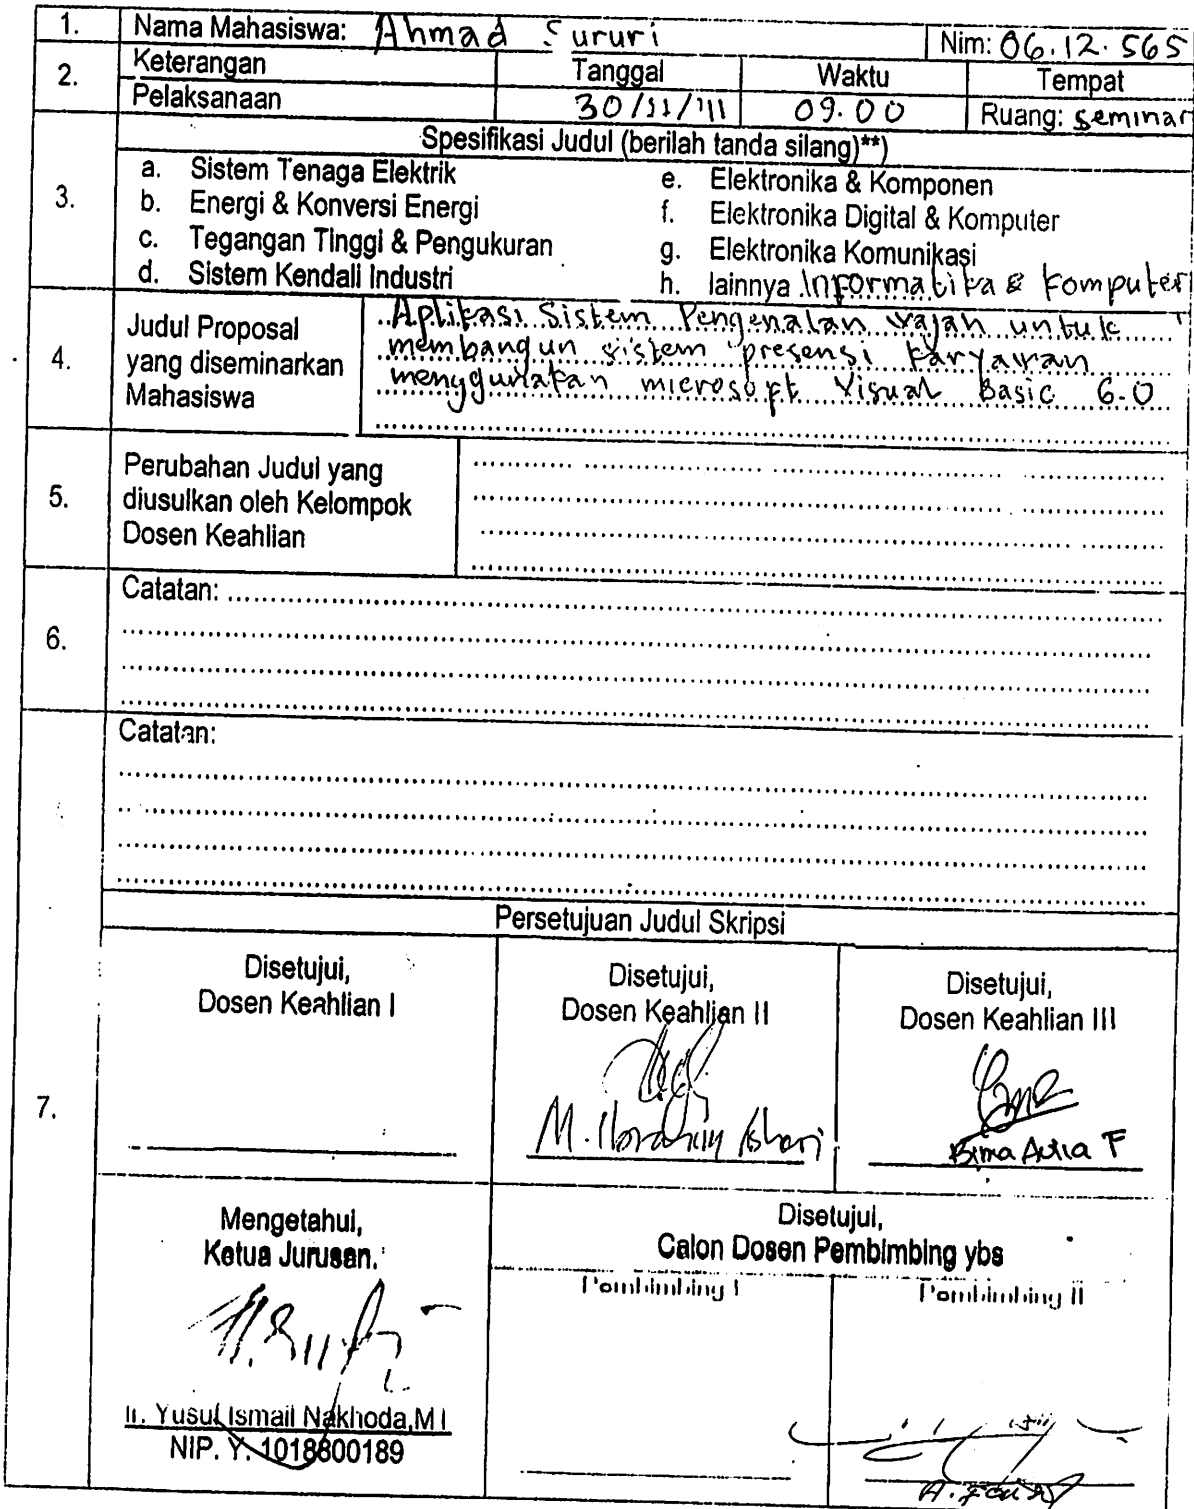 1. Nama Mahasiswa: Ahmad Sururi Nim: 06.12.565
2. Keterangan Tanggal Waktu Tempat
Pelaksanaan 30/11/'11 09.00 Ruang: seminar
3. Spesifikasi Judul (berilah tanda silang)**)
a. Sistem Tenaga Elektrik
b. Energi & Konversi Energi
c. Tegangan Tinggi & Pengukuran
d. Sistem Kendali Industri
e. Elektronika & Komponen
f. Elektronika Digital & Komputer
g. Elektronika Komunikasi
h. lainnya Informatika & Komputer
4. Judul Proposal
yang diseminarkan
Mahasiswa
Aplikasi Sistem Pengenalan wajah untuk
membangun sistem presensi karyawan
menggunakan microsoft Visual Basic 6.0
5. Perubahan Judul yang
diusulkan oleh Kelompok
Dosen Keahlian
6. Catatan:
Catatan:
Persetujuan Judul Skripsi
7. Disetujui,
Dosen Keahlian I
Disetujui,
Dosen Keahlian II
M. Ibrahim Ashari
Disetujui,
Dosen Keahlian III
Bima Aulia F
Mengetahui,
Ketua Jurusan.
Ir. Yusuf Ismail Nakhoda,MT
NIP. Y. 1018800189
Disetujui,
Calon Dosen Pembimbing ybs
Pembimbing I
Pembimbing II